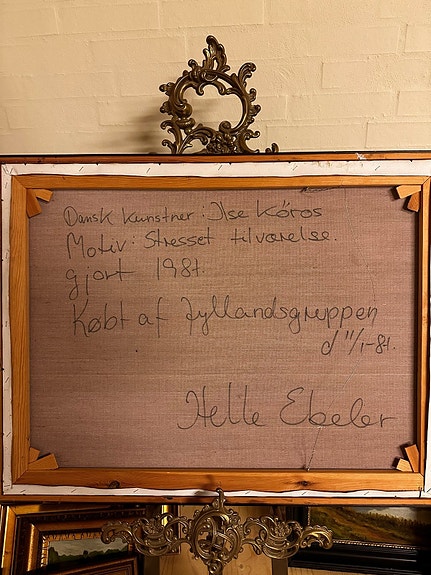 Dansk Kunstner: Ilse Köros
Motiv: Stresset tilværelse.
gjort 1981.
Købt af Jyllandsgruppen
d 11/1-81.
Helle Ebeler